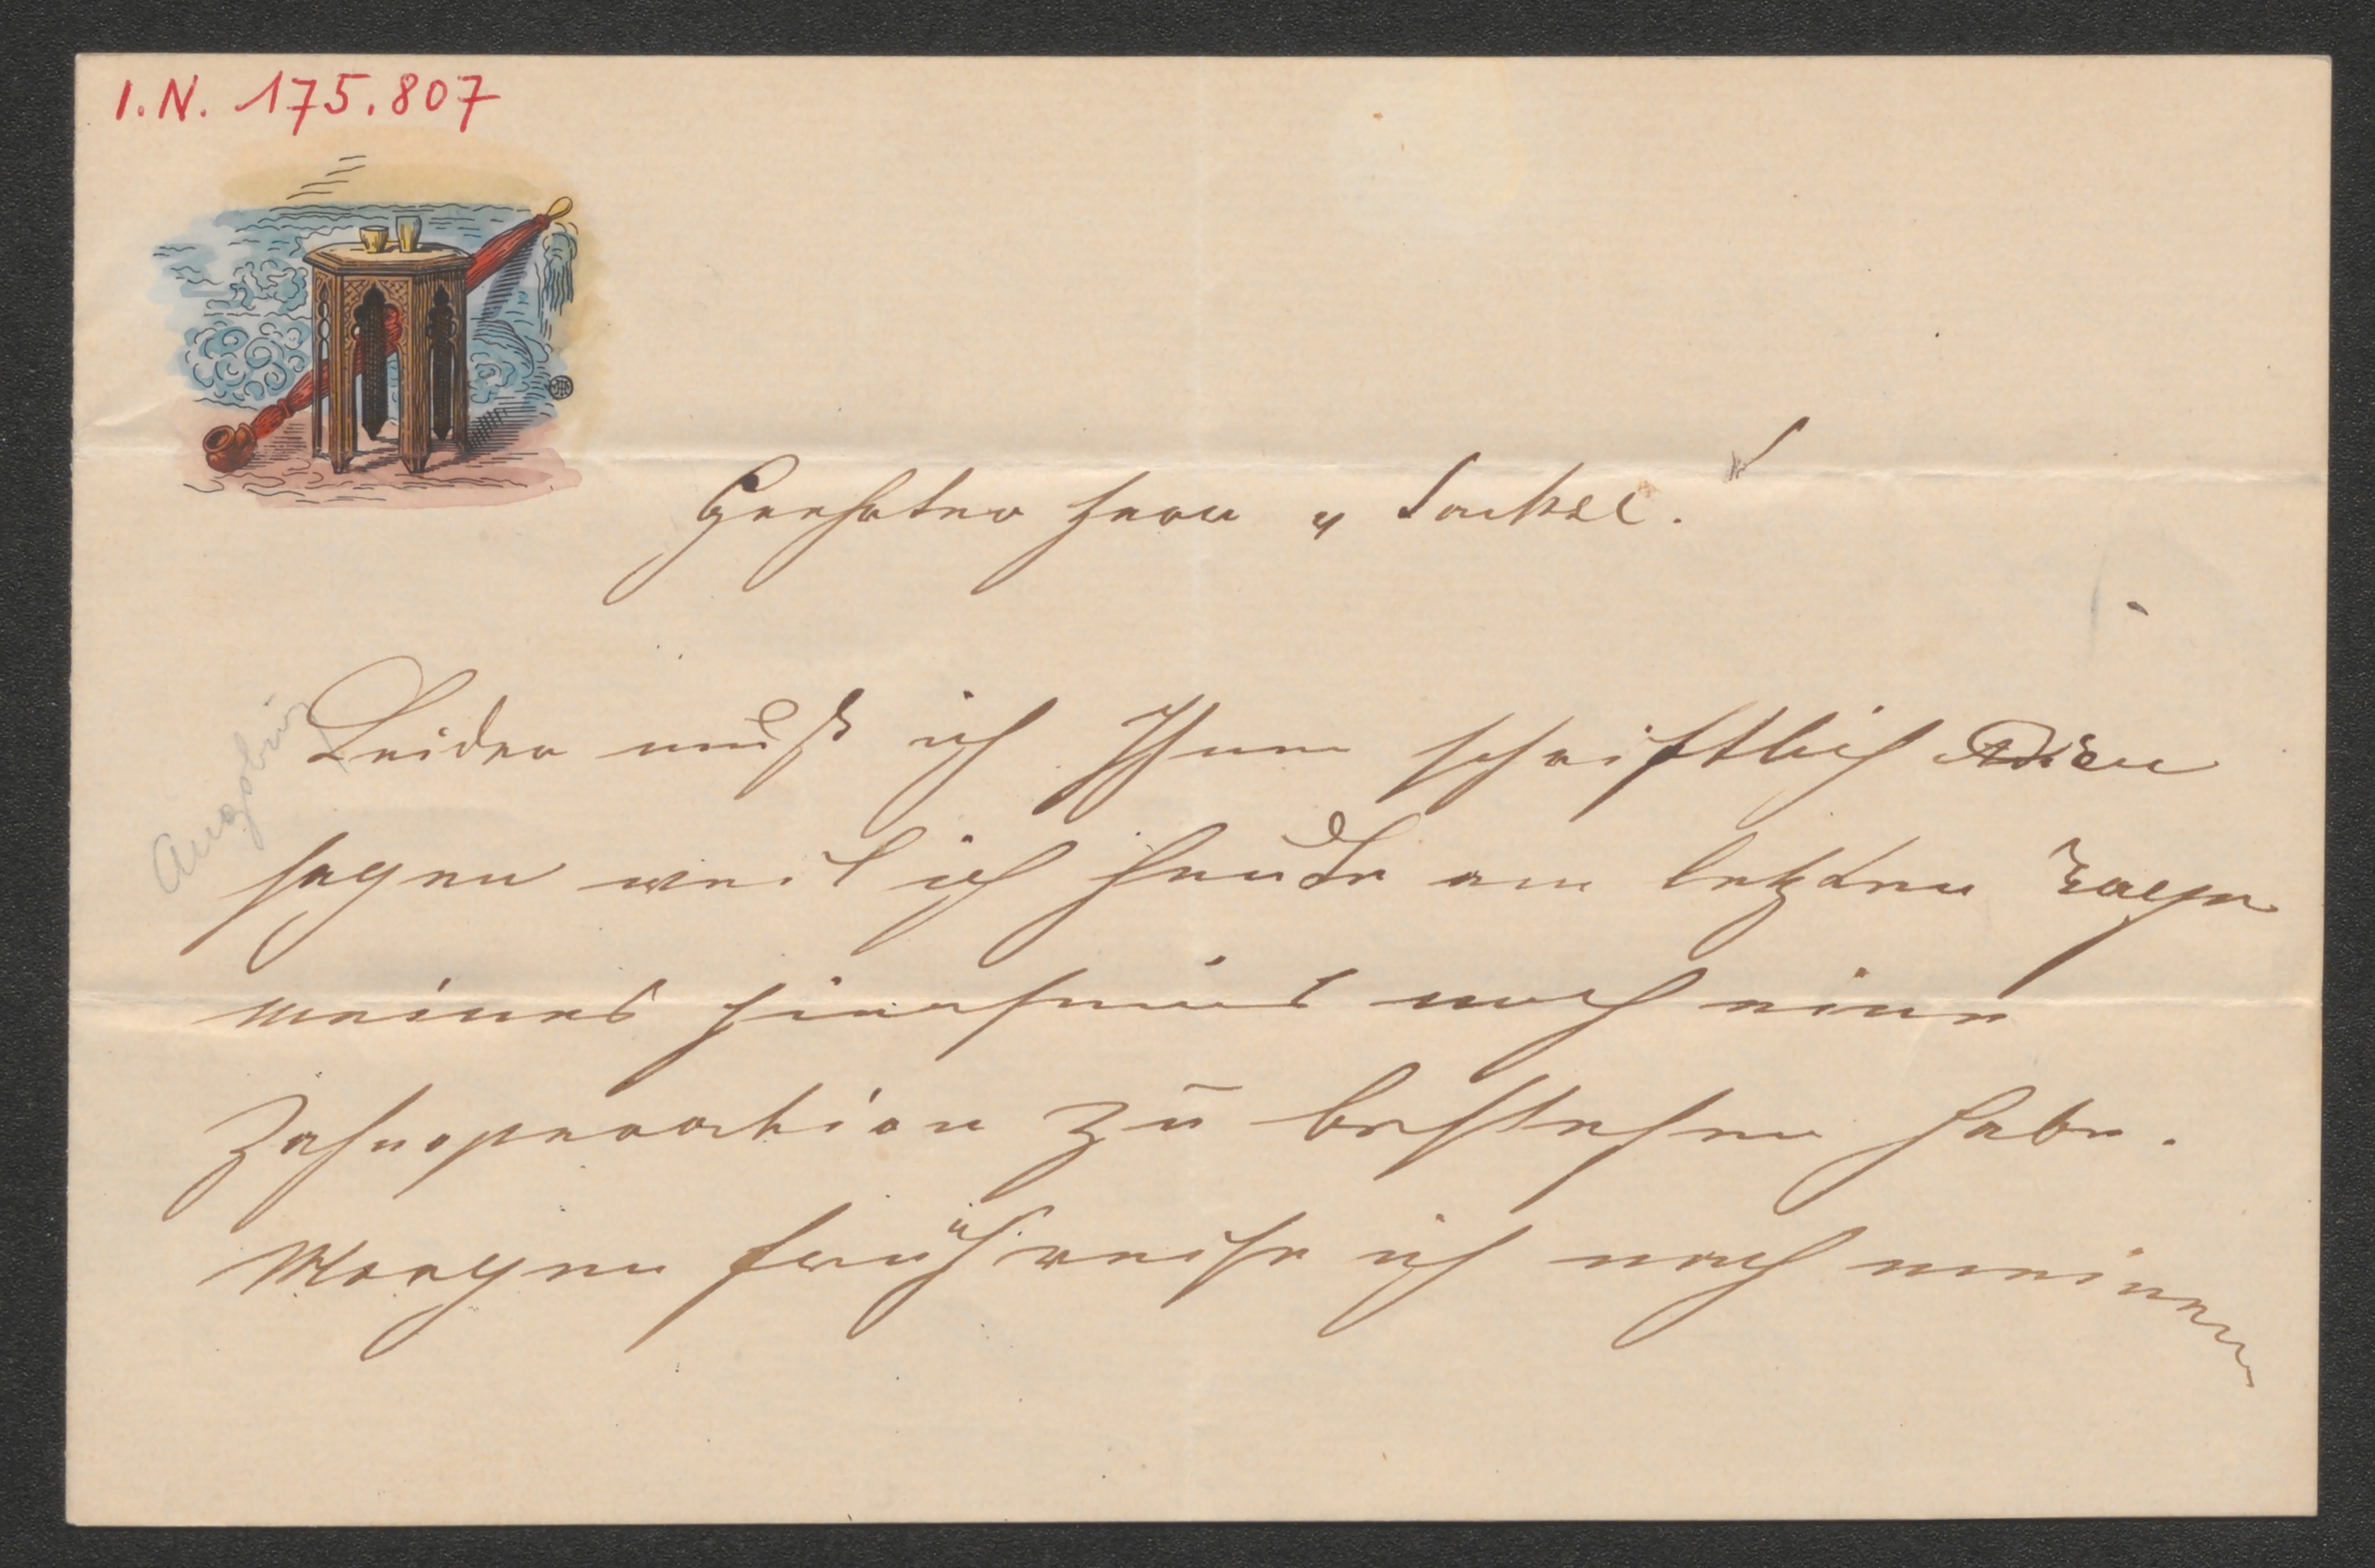 I.N. 175.807
Geehrter Herr „Sackel."
Leider muß ich Ihnen schriftlich Adieu
sagen weil ich heute am letzten Tage
meines Hierseins noch eine
Zahnoperation zu bestehen habe.
Morgen früh reise ich nach meinem